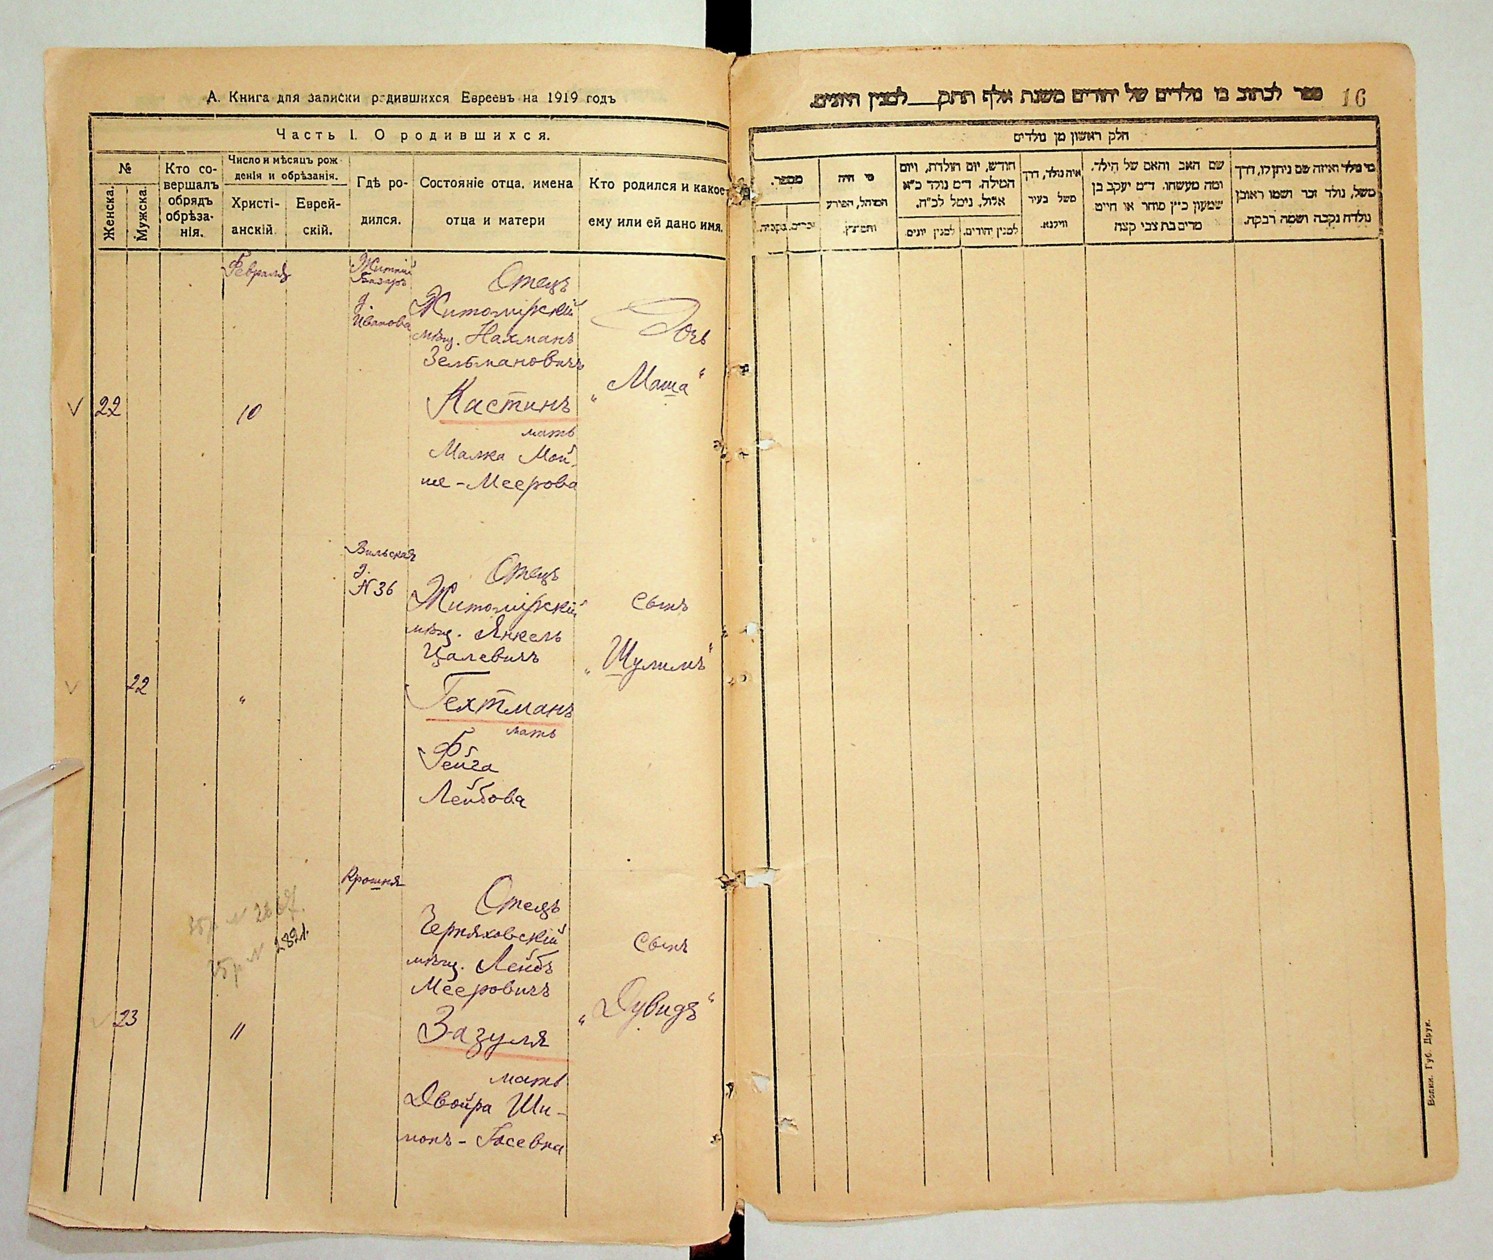 А. Книга для записки родившихся Евреевъ на 1919 годъ
Часть I. О родившихся.
№
Женска.
Мужска.
Кто со-
вершалъ
обрядъ
обрѣза-
нія.
Число и мѣсяцъ рож
денія и обрѣзанія.
Христі-
анскій.
Еврей-
скій.
Гдѣ ро-
дился.
Состояніе отца, имена
отца и матери
Кто родился и какое
ему или ей дано имя.
22
Февраля
10
Житній
Базаръ
д.
Иванова
Отецъ
Житомірскій
мѣщ. Нахманъ
Зельмановичъ
Кастинъ
мать
Малка Мой-
ше-Меерова
Дочь
„Маша“
22
„
Вильская
д.
N 36
Отецъ
Житомірскій
мѣщ. Янкель
Цалевичъ
Гехтманъ
мать
Фейга
Лейбова
сынъ
„Шулимъ“
23
„
Крошня
Отецъ
Черняховскій
мѣщ. Лейбъ
Мееровичъ
Зазуля
мать
Двойра Ши-
монъ-Іосевна
сынъ
„Дувидъ“
N
N 2821.
ספר לכתוב בו נולדים של יהודים משנת אלף תתק___למנין היונים.
16
חלק ראשון מן נולדים
מספר.
זכרים.
נקבות.
מי היה
המוהל, הפורע
והמוצץ.
חודש, יום הולדת, ויום
המילה. ד״מ נולד כ״א
אלול, נימל לכ״ח.
למנין יונים
למנין יהודים.
איה נולד, דרך
משל בעיר
ווילנא.
שם האב והאם של הילד.
ומה מעשהו. ד״מ יעקב בן
שמעון כ״ץ סוחר או חייט
מרים בת צבי קצה
מי נולד ואיזה שם ניתן לו, דרך
משל, נולד זכר ושמו ראובן
נולדה נקבה ושמה רבקה.
Волын. Губ. Друк.